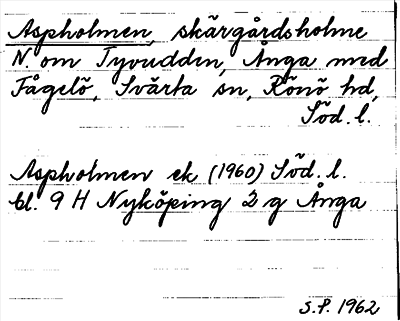 Aspholmen, skärgårdsholme
N. om Tyvudden, Ånga med
Fågelö, Svärta sn, Rönö hd,
Söd. l.
Aspholmen ek (1960) Söd. l.
bl. 9 H Nyköping 2 g Ånga
S.P. 1962